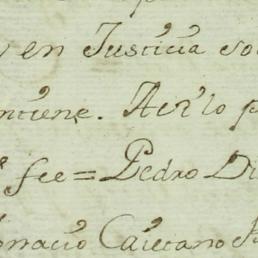 y en Justicia so
ntiene. Assi lo p
fee = Pedro Di
gnacio Caietano